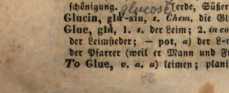 schönigung. glucose ferde, Süßer
Glucin, glū-sin, s. Chem. die Gl
Glue, glū, 1. s. der Leim; 2. in co
der Leimsieder; — pot, s) der L
der Pfarrer (weil er Mann und F
To Glue, v. a. s) leimen; plani